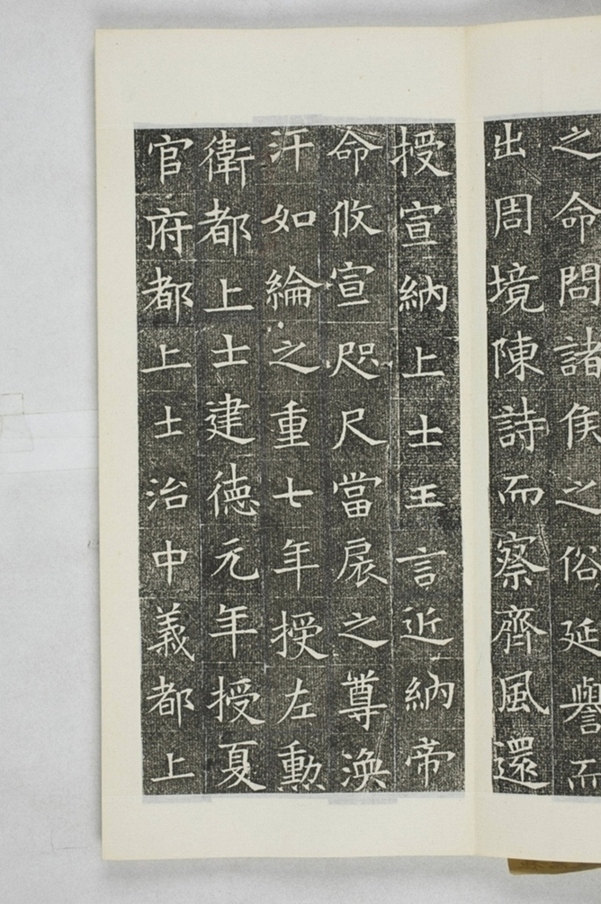 之命問諸侯之俗延譽而
出周境陳詩而察齊風還
授宣納上士王言近納帝
命攸宣咫尺當扆之尊渙
汗如綸之重七年授左勳
衛都上士建德元年授夏
官府都上士治中義都上